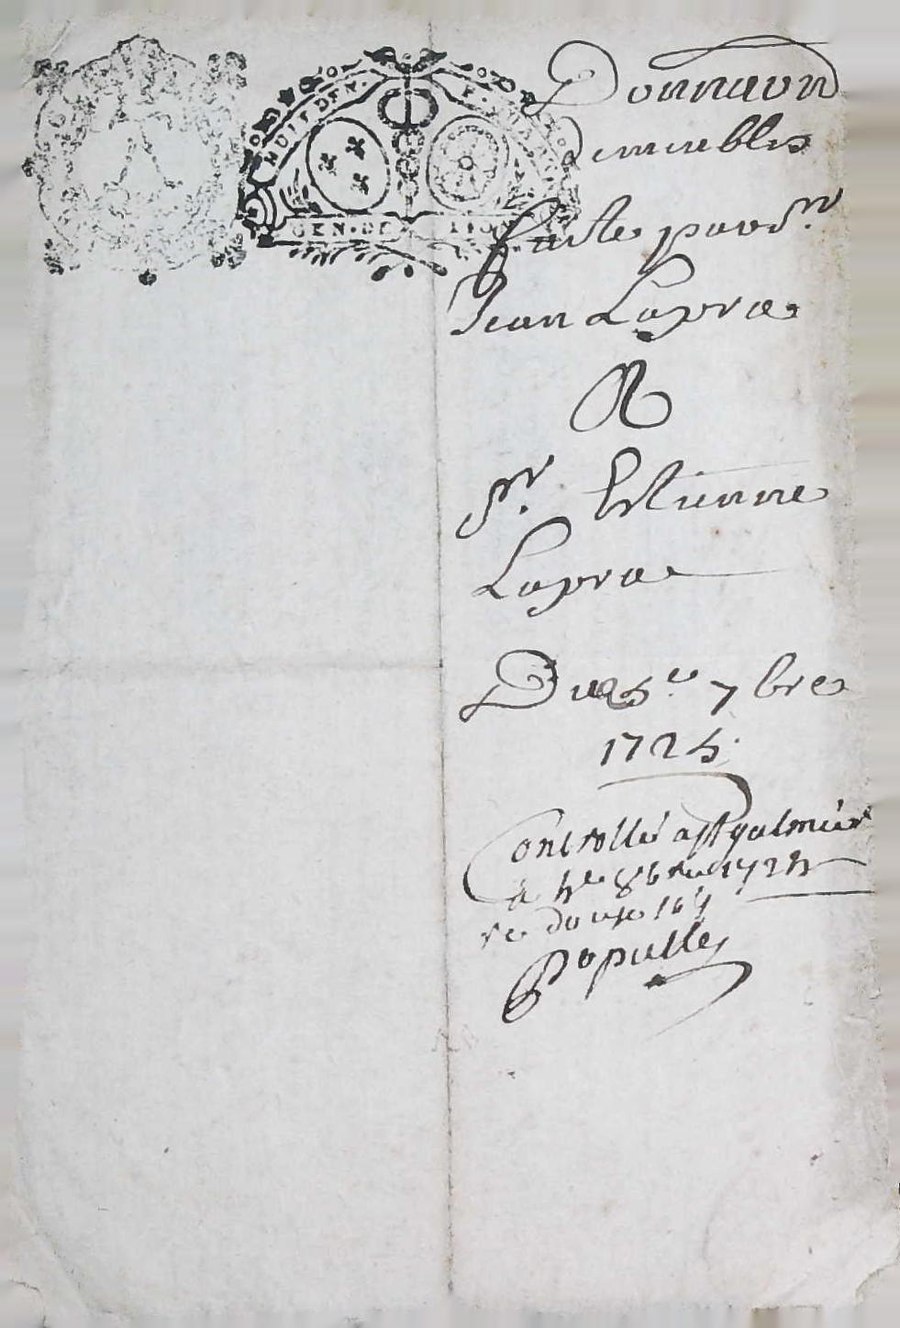 HUIT DEN.
GEN. DE LION
Donnaon
de meubles
faite par Sr.
Jean Lapra
A
Sr. Estienne
Lapra
Du 7bre
1725.
Controllé a St galmier
8bre
re douze
Papulle